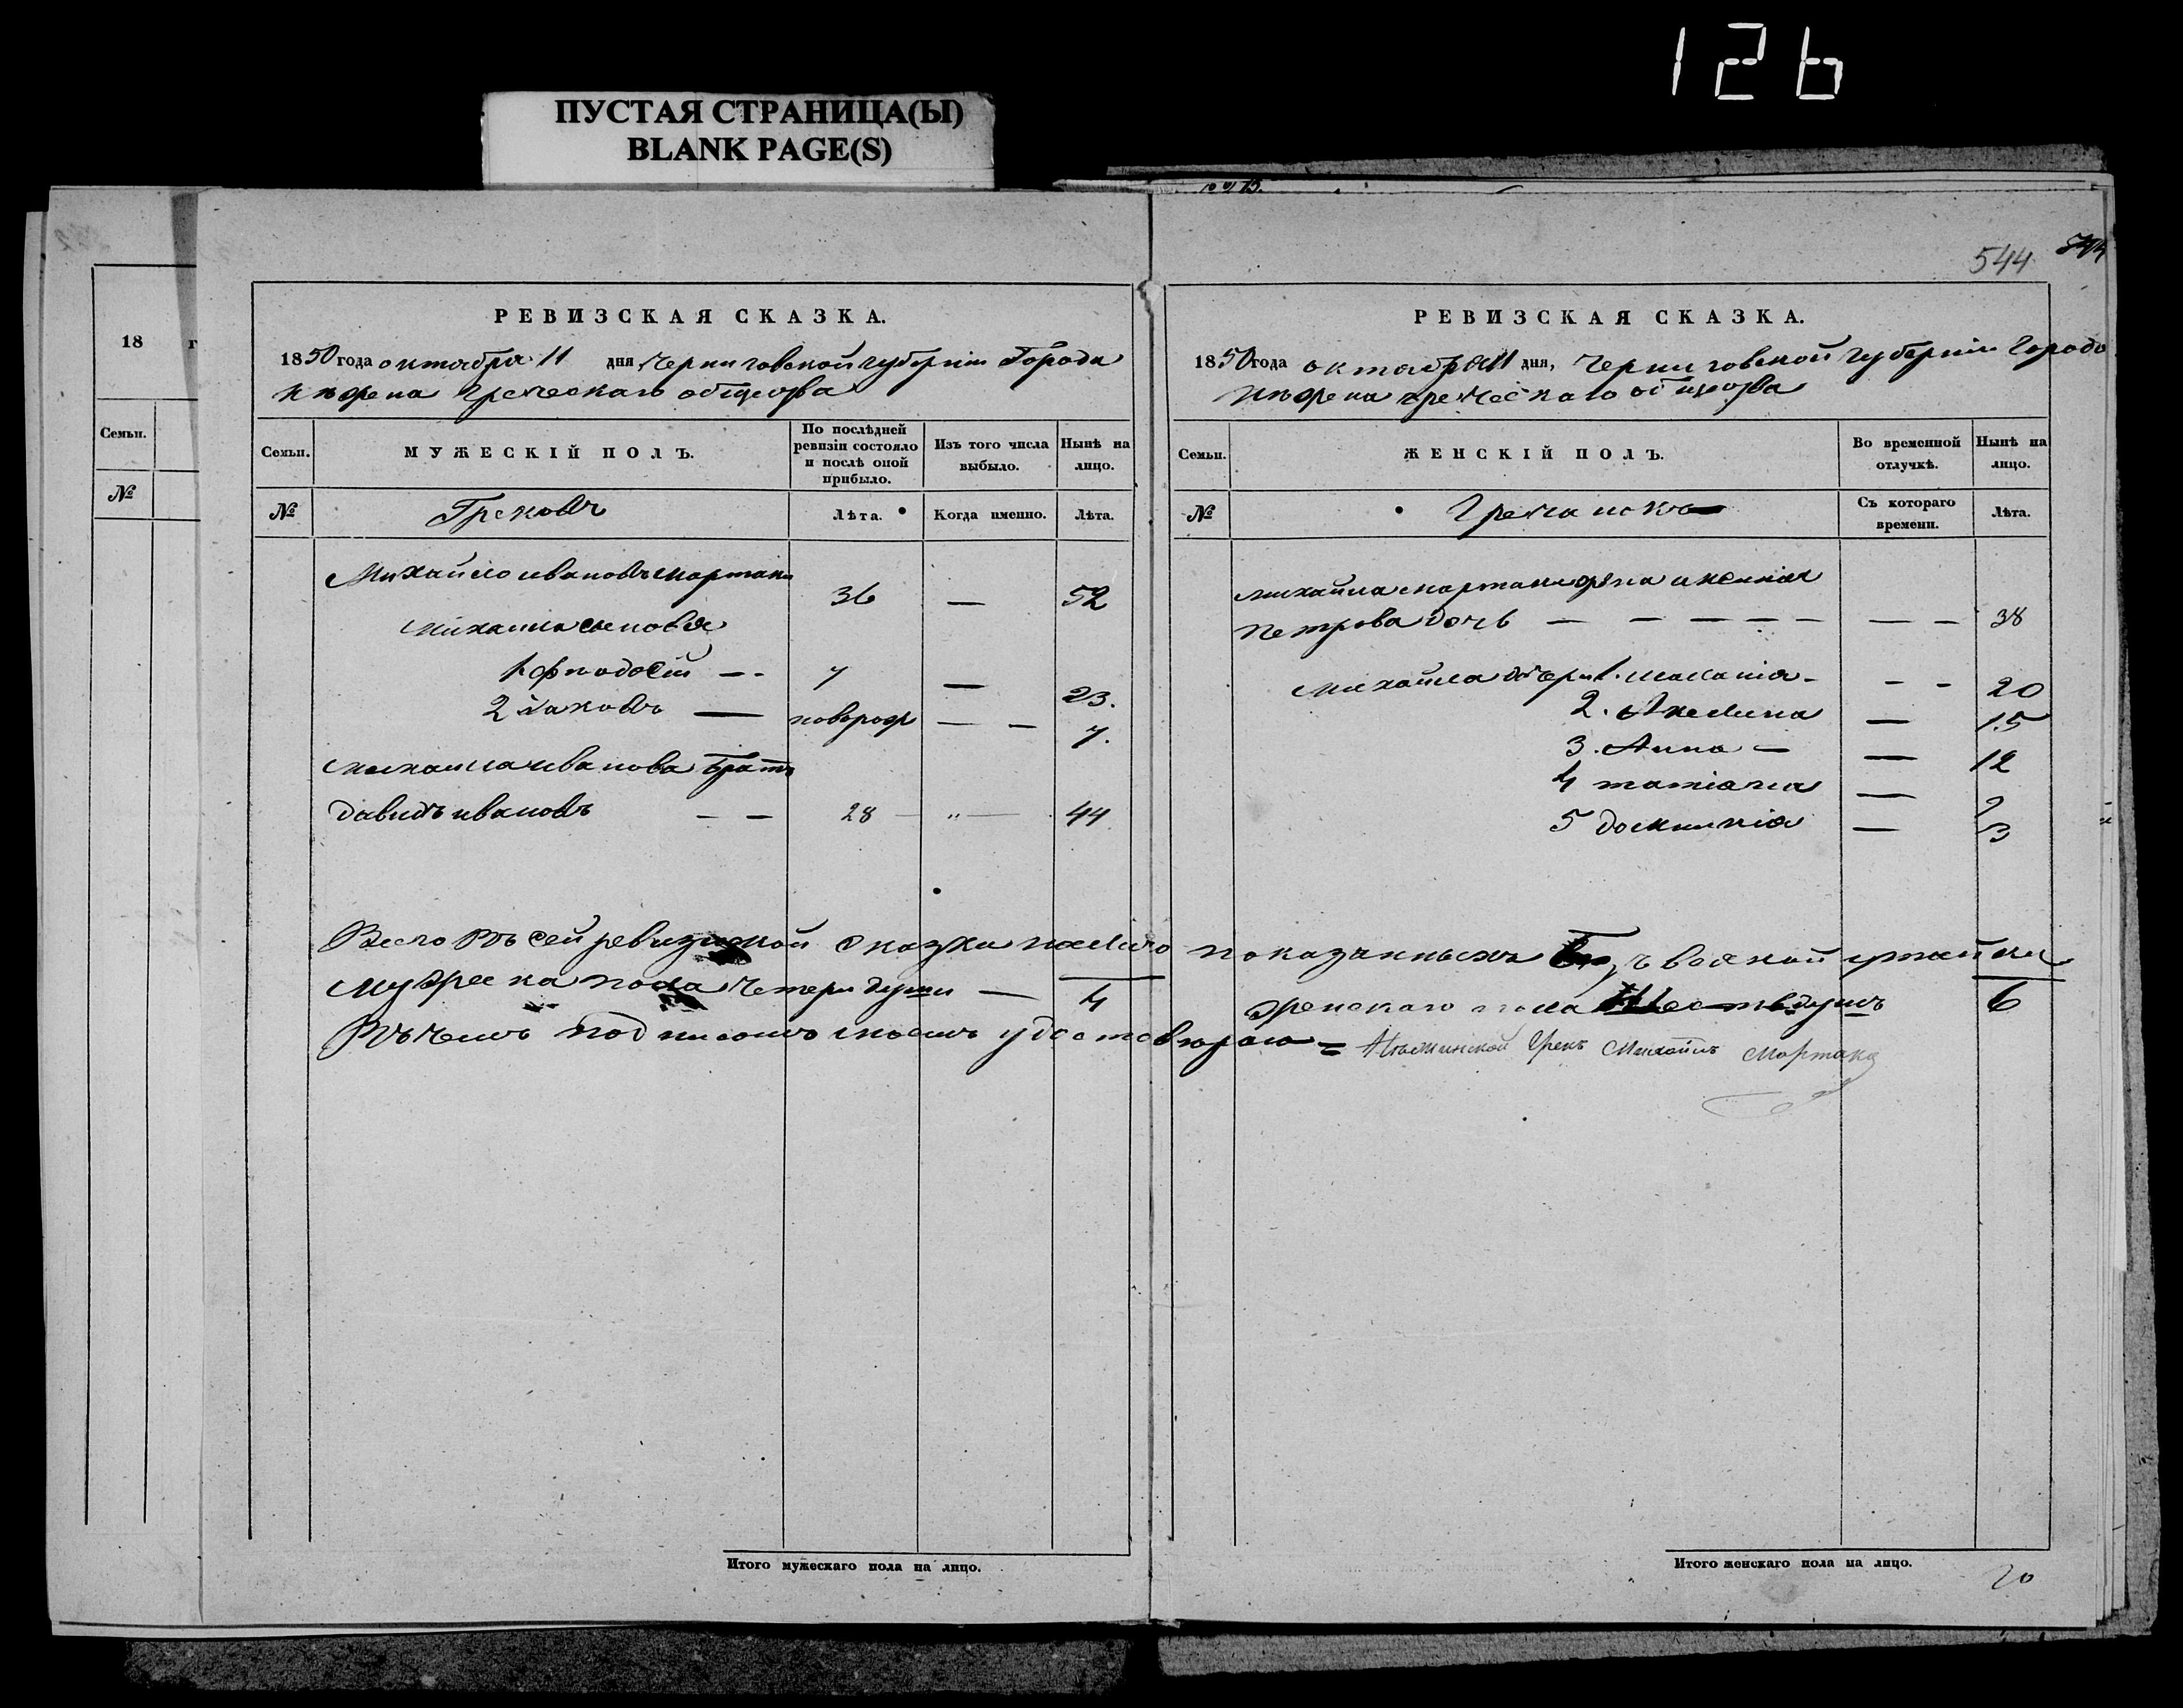 126
ПУСТАЯ СТРАНИЦА(Ы)
BLANK PAGE(S)
544
18 г
Семьи.
№
РЕВИЗСКАЯ СКАЗКА.
1850 года октября 11 дня Черниговской губерніи Города
Нѣжена Греческаго общества
Семьи. МУЖЕСКІЙ ПОЛЪ. По послѣдней ревизіи состояло и послѣ оной прибыло. Изъ того числа выбыло. Нынѣ на лицо.
№ Грековъ Лѣта. Когда именно. Лѣта.
Михайло Ивановъ Мартаки 36 — 52
Михаила сыновья
1 Феодосій — 7 — 23.
2 Іаковъ — новорож — — 7.
Михаила Иванова братъ
Давидъ Ивановъ — — 28 — „ — 44
Всего въ сей ревизской сказки на лицо
мужеска пола четери души — 4
РЕВИЗСКАЯ СКАЗКА.
1850 года октября 11 дня, Черниговской губерніи Города
Нѣжена греческаго общества
Семьи. ЖЕНСКІЙ ПОЛЪ. Во временной отлучкѣ. Нынѣ на лицо.
№ Гречанокъ Съ котораго времени. Лѣта.
Михаила Мартаки жена
Петрова дочь — — — — — — — 38
Михаила дочери 1. Маланія — — — 20
2. Акелина — 15
3. Анна — — 12
4 татіана —
5 — 3
показанныхъ безъ всякой утайки
женскаго пола шесть душъ 6
Въ чемъ подписомъ моимъ удостоверяю = Нѣжинской Грекъ Михайлъ Мартаки
Итого мужескаго пола на лицо.
Итого женскаго пола на лицо.
20